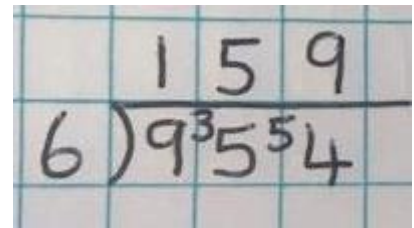 1 5 9
6)9³5⁵4